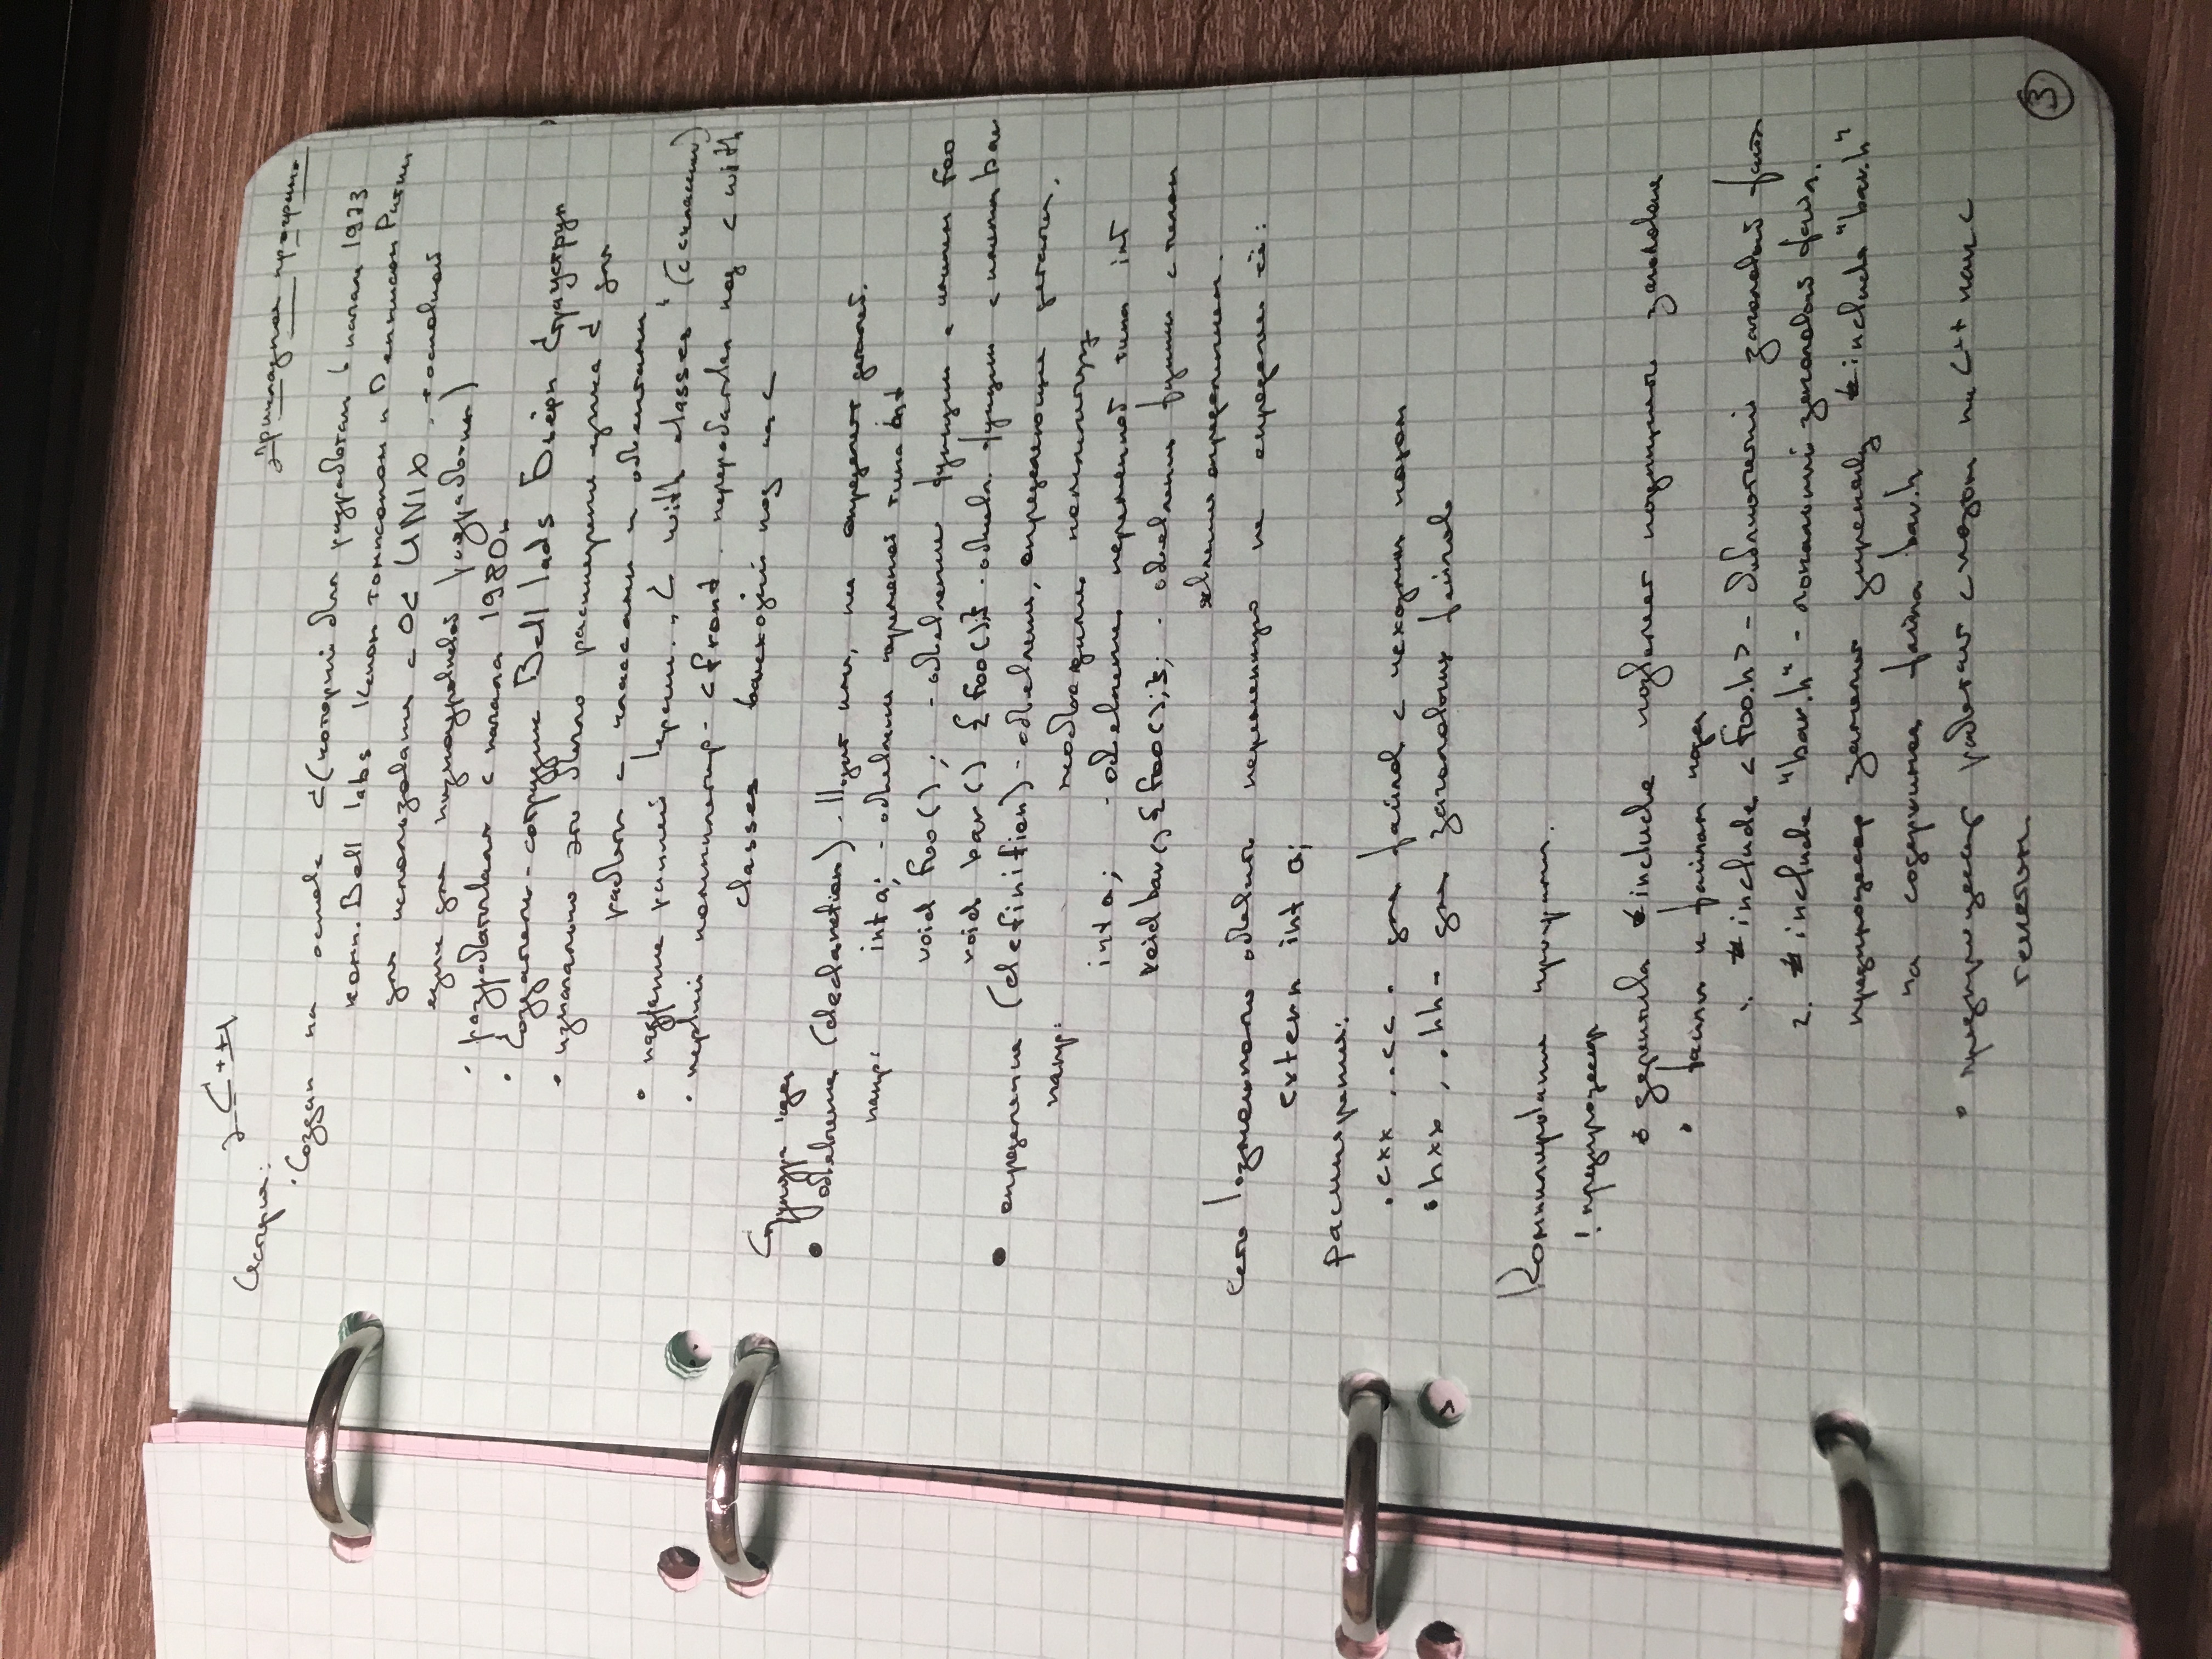 C++
прикладное програм.
История:
· Создан на основе C (который был разработан в начале 1973
комп. Bell labs Кеном томпсоном и Деннисом Ритчи
для использования с ОС UNIX, основной
язык для низкоуровневой разработки)
· разрабатывался с начала 1980х
· Создатель - сотрудник Bell labs Бьёрн Страуструп
· изначально это было расширение языка C для
работы с классами и объектами
· название ранней версии "C with classes" (с классами)
· первый компилятор - cfront. перерабатывал код C with
classes в исходный код на C
Структура кода
• объявление (declaration) - Вводит имя, не определяет деталей.
напр: int a; - объявление переменной типа int
void foo(); - объявление функции с именем foo
void bar() {foo();} - объявл. функции с именем bar
• определение (definition) - объявление, определяющее детали,
напр: необходимые компилятору
int a; - объявление переменной типа int
void bar() {foo();}; - объявление функции с телом
является определением.
Есть возможность объявить переменную не определяя её:
extern int a;
расширения:
.cxx, .cc - для файлов с исходным кодом
.hxx, .hh - для заголовочных файлов
Компилирование программ.
! препроцессор
директива #include позволяет подключить заголовочные
· файлы к файлам кода
1. #include <foo.h> - библиотечный заголовочный файл
2. #include "bar.h" - локальный заголовочный файл.
препроцессор заменяет директиву #include "bar.h"
на содержимое файла bar.h
· препроцессор работает с кодом на C++ как с
текстом.
3